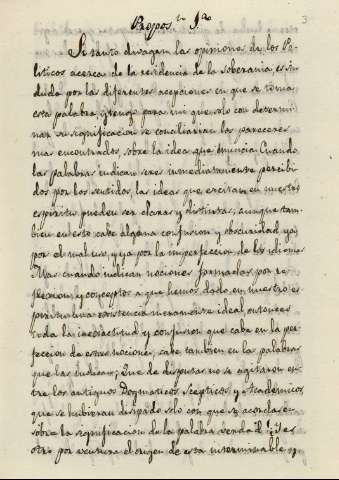 3
Propos.n 1.a
Si tanto divagan las opiniones de los Po-
liticos acerca de la residencia de la soberania es sin
duda por las diferentes acepciones en que se toma
esta palabra, y tengo para mi que solo con determi-
nar su significacion se conciliarian los pareceres
mas encontrados, sobre la idea que enuncia. Cuando
las palabras indican seres inmediatamente percibi-
dos por los sentidos, las ideas que excitan en nuestro
espiritu pueden ser claras y distintas; aunque tam-
bien en esto cabe alguna confusion y obscuridad ya
por el mal uso, y ya por la imperfeccion de los idiomas
Mas cuando indican nociones formadas por re-
flexion, y conceptos a que hemos dado en nuestro es-
piritu una existencia meramente ideal, entonces
toda la inexactitud y confusion que cabe en la per-
feccion de estas nociones, cabe tambien en las palabras
que las indican; Que de disputas no se agitaron en-
tre los antiguos Dogmaticos, Scepticos, y Academicos,
que se hubieran disipado solo con que se acordasen
sobre la significacion de la palabra verdad! Y es
otro por ventura el origen de esta interminable